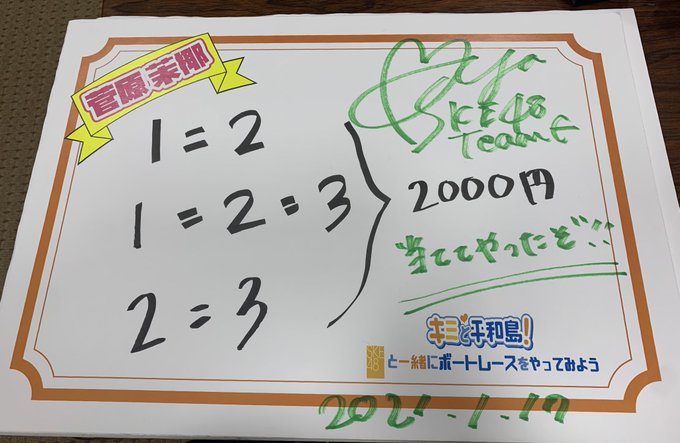 菅原茉椰
1=2
1=2=3
2=3
2000円
Maya
SKE48
Team E
当ててやったぞ!!
キミと平和島!
SKE48
と一緒にボートレースをやってみよう
2021.1.17